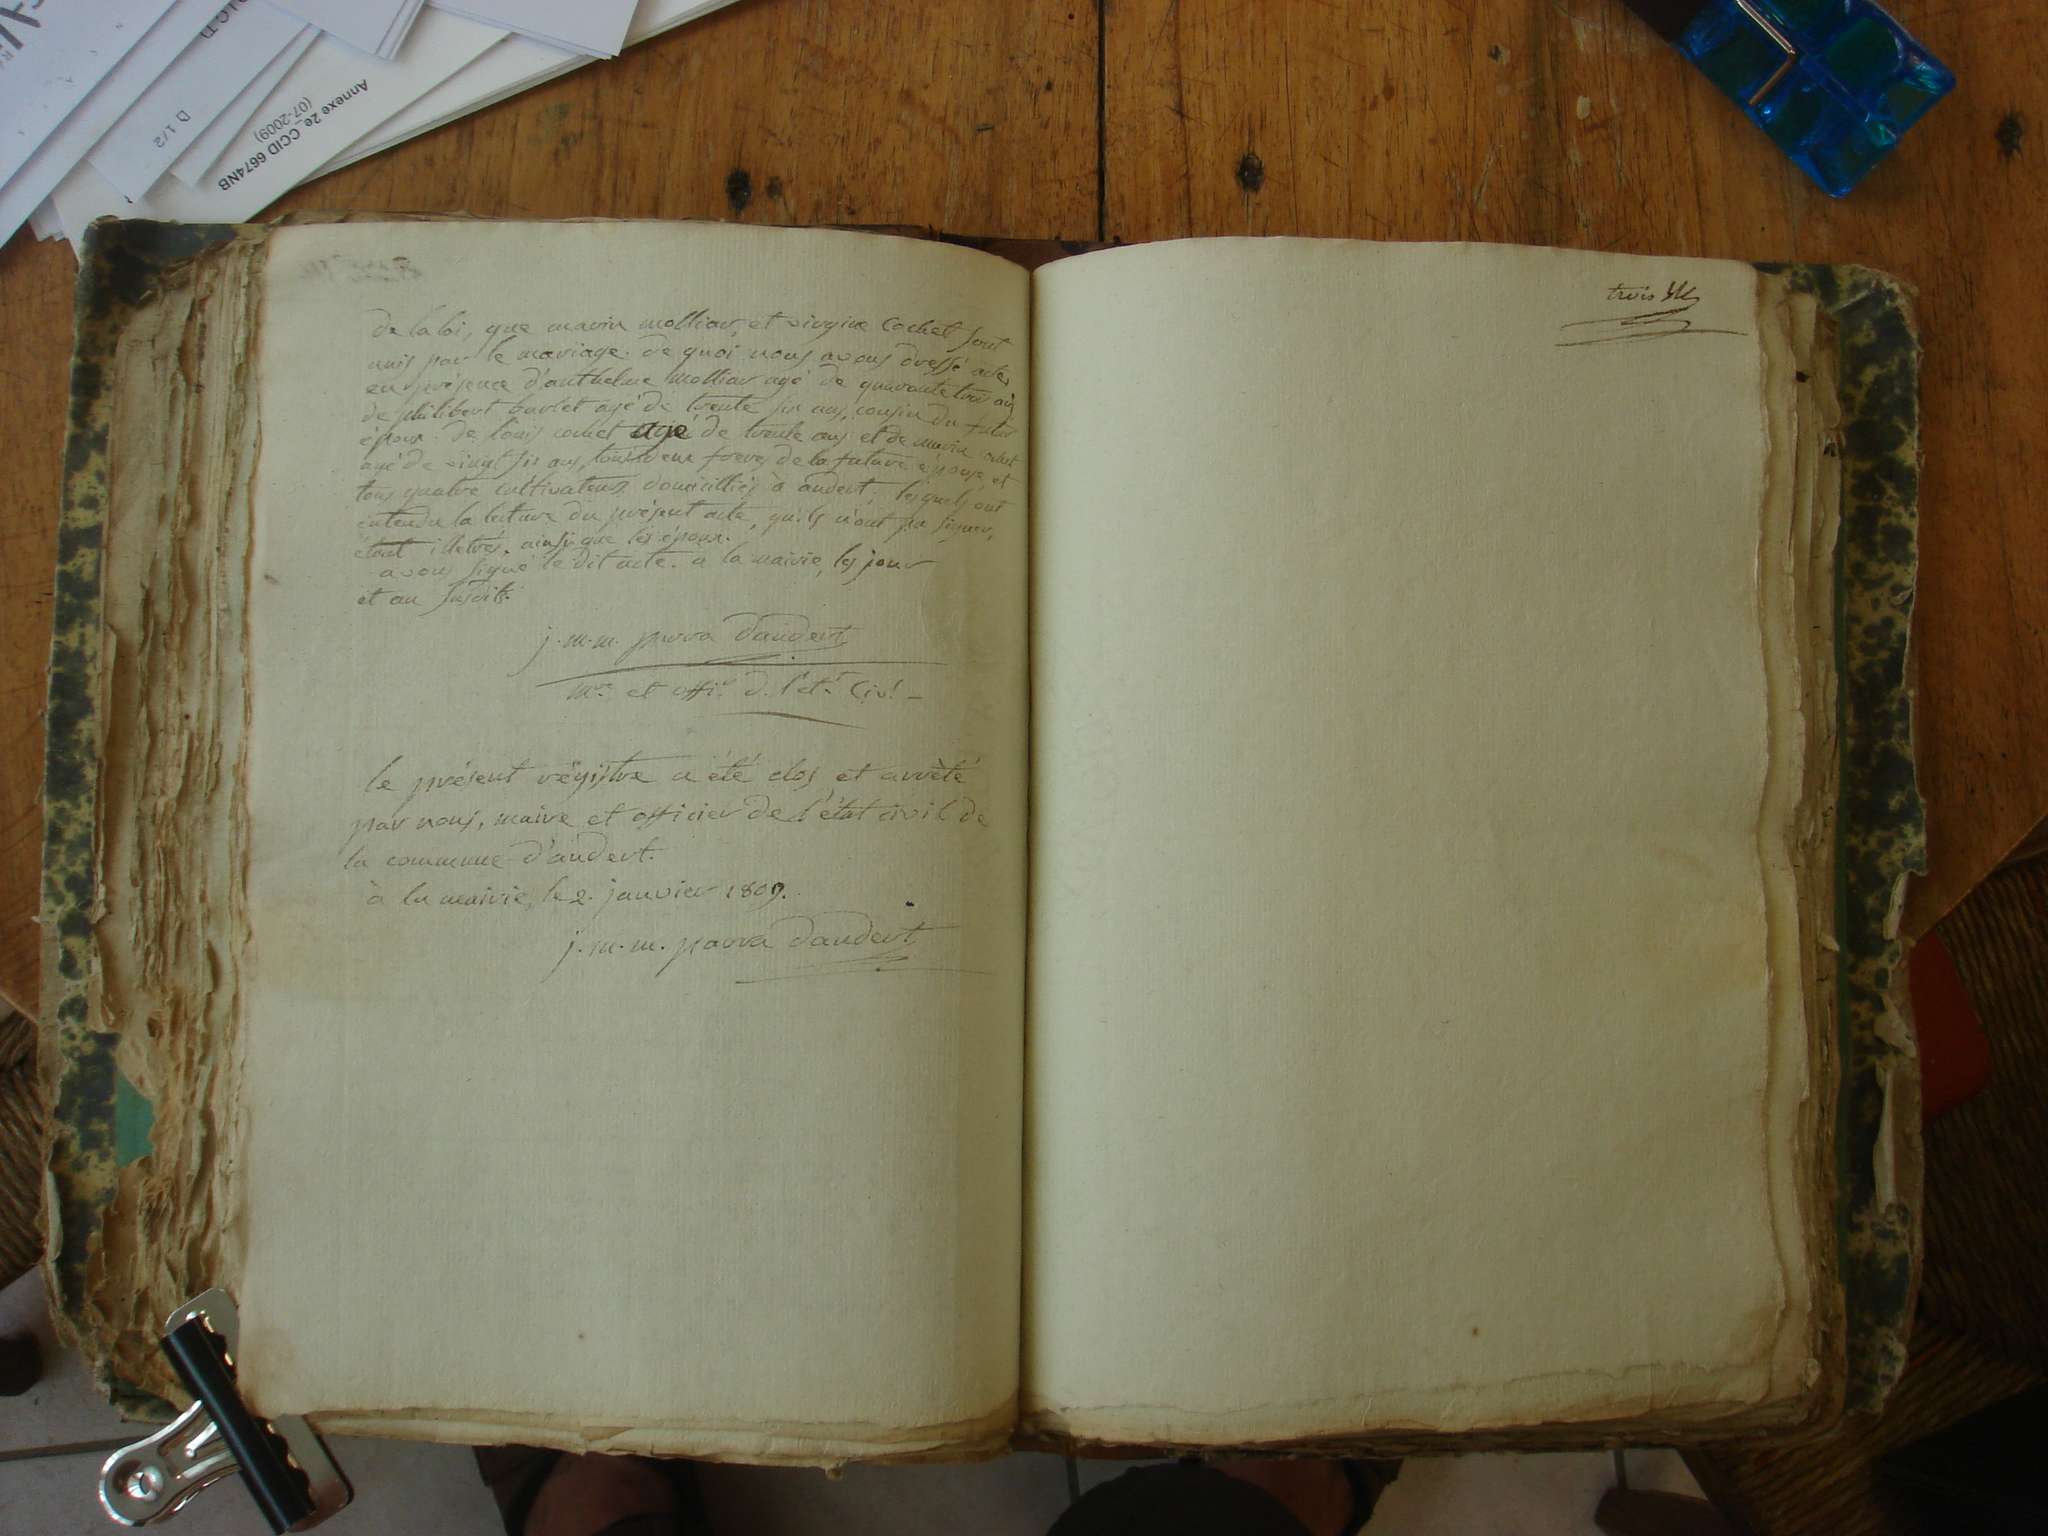 Annexe 2e_CCID 6674NB
(07-2009)
D 1/2
trois
de la loi, que marin molliar, et virgine cochet sont
unis par le mariage. de quoi nous avons dressé acte,
en présence d'anthelme molliar agé de quarante trois ans
de philibert barlet agé de trente six ans, cousin du futur
époux. de louis cochet agé de trente ans et de marin cochet
agé de vingt six ans, tous deux freres de la future épouse, et
tous quatre cultivateurs domiciliés à andert; lesquels ont
entendu la lecture du présent acte, qu'ils n'ont pu signer,
étant illetrés, ainsi que les époux.
avons signé le dit acte. a la mairie, les jour
et an susdits.
j. m. m. parra d'andert
mre et offir d. l'ét. civl
le présent régistre a été clos et arrèté
par nous, maire et officier de l'état civil de
la commune d'andert.
à la mairie, le 2. janvier 1809.
j. m. m. parra d'andert